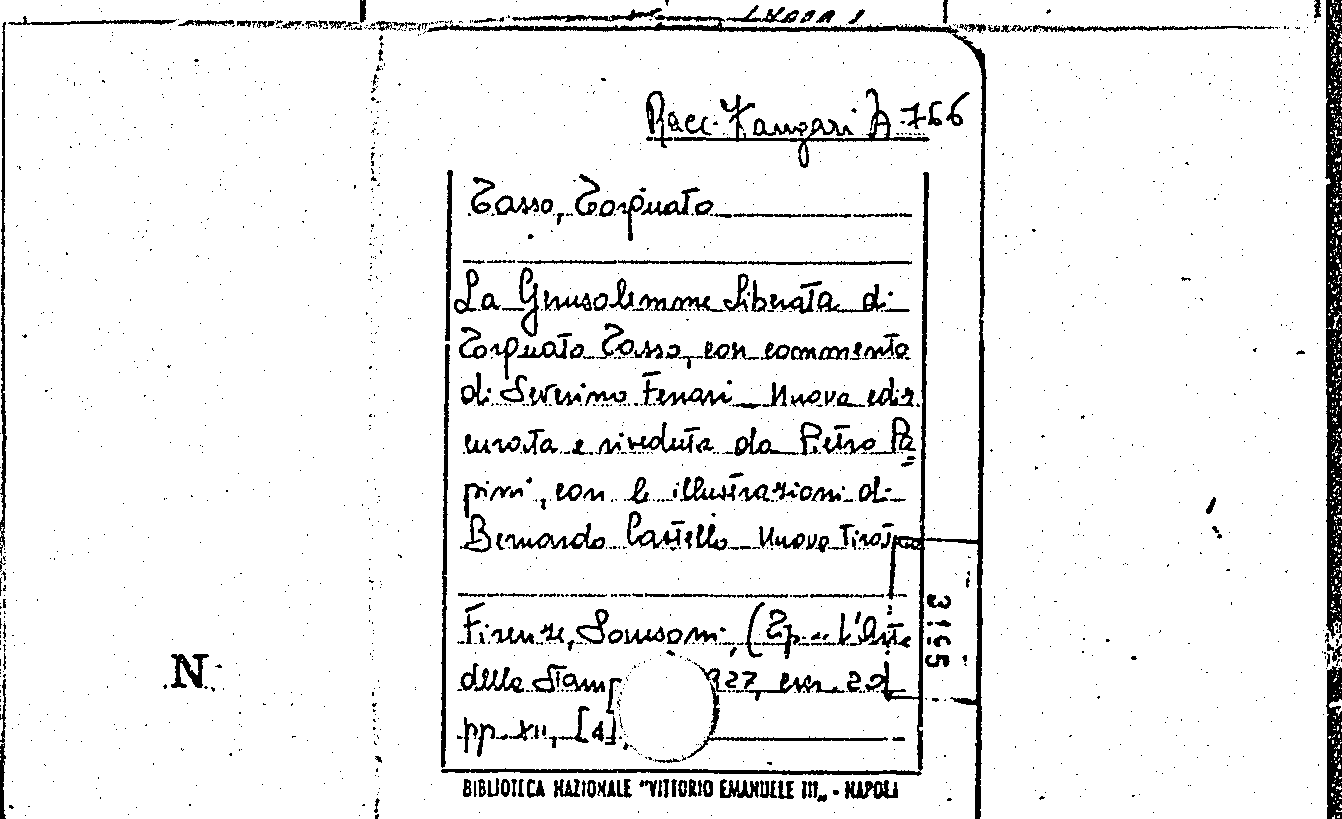 Racc. Zangari A 766
Tasso, Torquato
La Gerusalemme liberata di
Torquato Tasso, con commento
di Severino Ferrari_ Nuova ediz.
curata e riveduta da Pietro Pa=
pini, con le illustrazioni di
Bernardo Castello_ Nuova
Firenze, Sansoni, (Tip. "L'Arte
della Stam 927, cm. 20
pp. XII, [4],
BIBLIOTECA NAZIONALE "VITTORIO EMANUELE III„ - NAPOLI
N